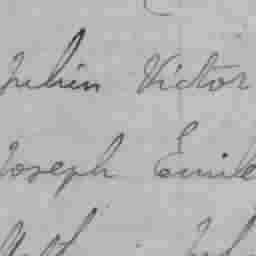 Julien Victor
Joseph Emile